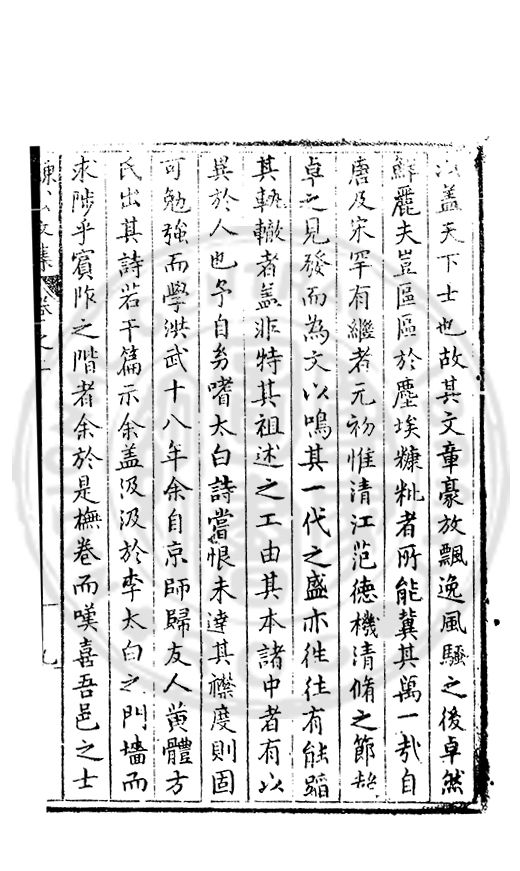 以盖天下士也故其文章豪放飄逸風騷之後卓然
鮮麗夫豈區區於塵埃糠粃者所能冀其萬一哉自
唐及宋罕有繼者元初惟清江范德機清脩之節超
卓之見發而為文以鳴其一代之盛亦徃徃有能蹈
其軌轍者盖非特其祖述之工由其本諸中者有以
異於人也予自㓜嗜太白詩嘗恨未達其襟度則固
可勉強而學洪武十八年余自京師歸友人黄體方
氏出其詩若干篇示余盖汲汲於李太白之門墻而
求陟乎賓阼之階者余於是橅卷而嘆喜吾邑之士
文集 卷之一
九